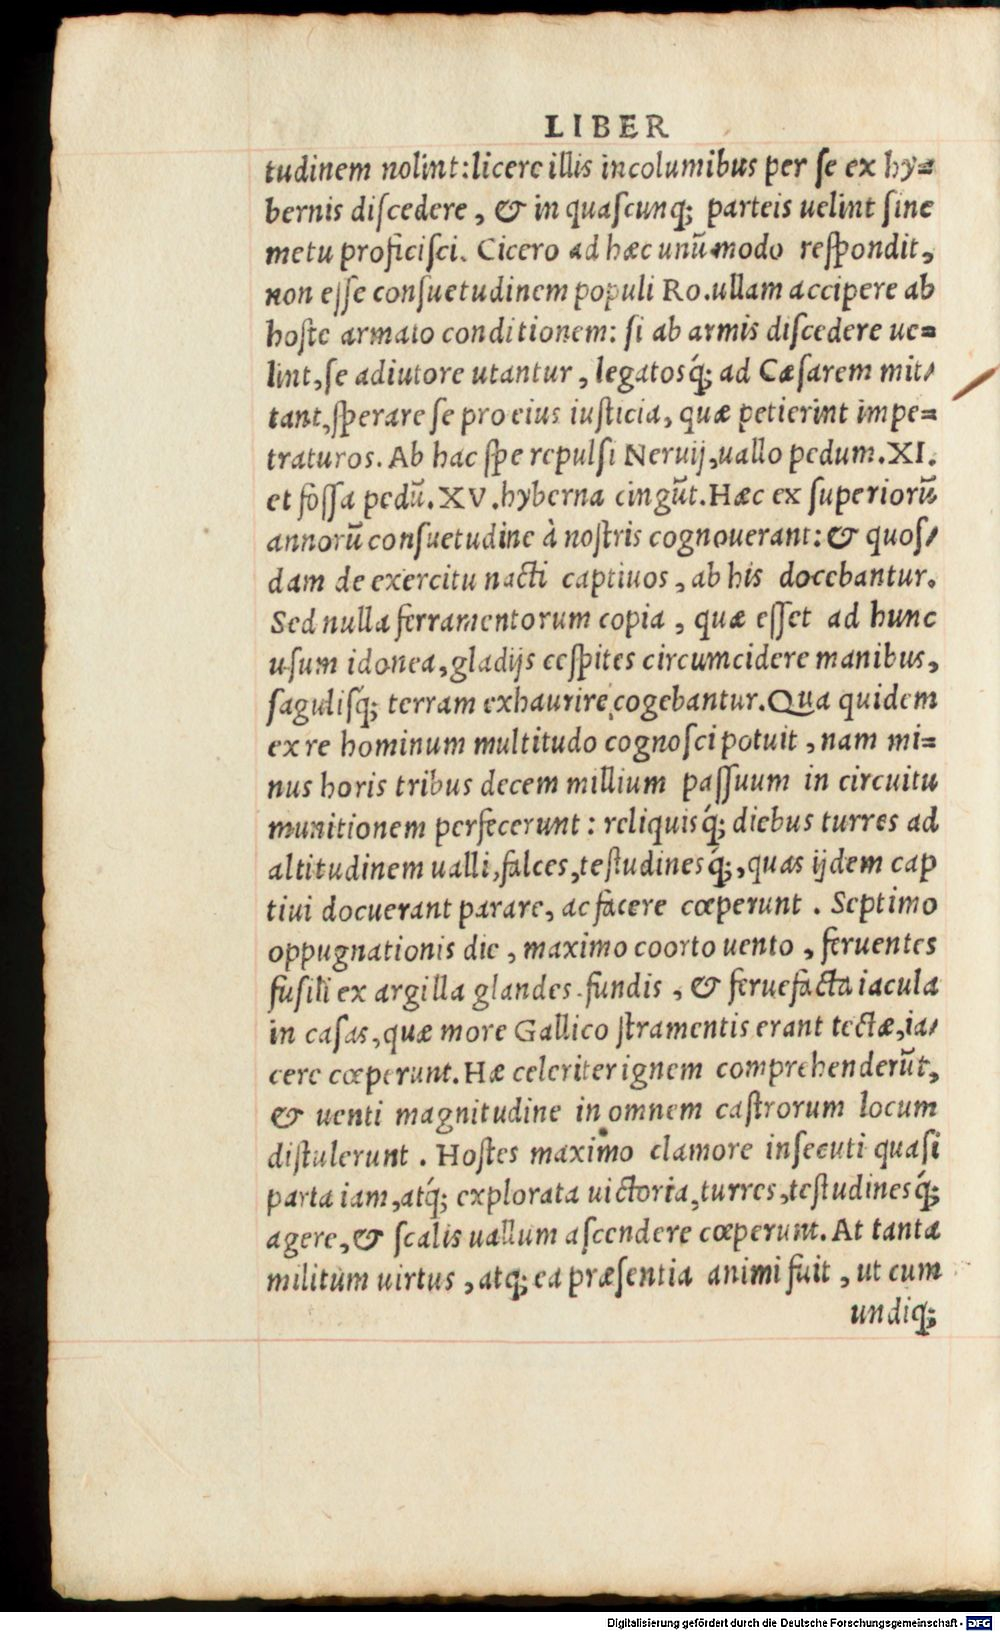 LIBER
tudinem nolint: licere illis incolumibus per ſe ex hy=
bernis diſcedere, & in quaſcunq; parteis uelint ſine
metu proficiſci. Cicero ad hæc unũ modo reſpondit,
non eſſe conſuetudinem populi Ro. ullam accipere ab
hoſte armato conditionem: ſi ab armis diſcedere ue=
lint, ſe adiutore utantur, legatosq́; ad Cæſarem mit/
tant, ſperare ſe pro eius iuſticia, quæ petierint impe=
traturos. Ab hac ſpe repulſi Neruij, uallo pedum. XI.
et foſſa pedũ. XV. hyberna cingũt. Hæc ex ſuperiorũ
annorũ conſuetudine à noſtris cognouerant: & quoſ/
dam de exercitu nacti captiuos, ab his docebantur.
Sed nulla ferramentorum copia, quæ eſſet ad hunc
uſum idonea, gladijs ceſpites circumcidere manibus,
ſagulisq́; terram exhaurire cogebantur. Qua quidem
ex re hominum multitudo cognoſci potuit, nam mi=
nus horis tribus decem millium paſſuum in circuitu
munitionem perfecerunt: reliquisq́; diebus turres ad
altitudinem ualli, falces, teſtudinesq́;, quas ijdem cap
tiui docuerant parare, ac facere cœperunt. Septimo
oppugnationis die, maximo coorto uento, feruentes
fuſili ex argilla glandes fundis, & feruefacta iacula
in caſas, quæ more Gallico ſtramentis erant tectæ, ia/
cere cœperunt. Hæ celeriter ignem comprehenderũt,
& uenti magnitudine in omnem caſtrorum locum
diſtulerunt. Hoſtes maximo clamore inſecuti quaſi
parta iam, atq́; explorata uictoria, turres, teſtudinesq́;
agere, & ſcalis uallum aſcendere cœperunt. At tanta
militum uirtus, atq; ea præſentia animi fuit, ut cum
undiq;
Digitalisierung gefördert durch die Deutsche Forschungsgemeinschaft - DFG